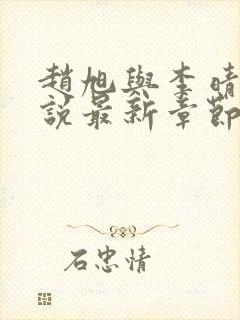 趙旭與李晴
說最新章節
石忠情